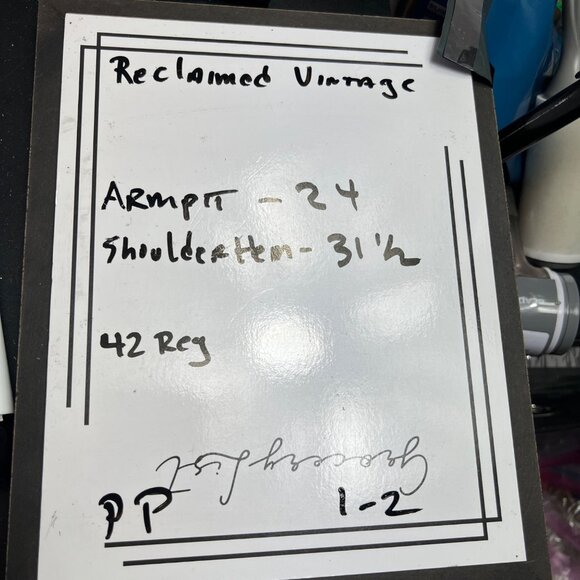 Reclaimed Vintage
Armpit - 24
Shoulder Hem - 31 1/2
42 Reg
Grocery List
PP 1-2